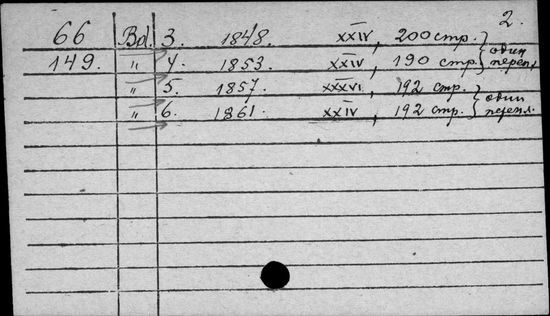 2.
66 Bd. 3. 1848. XXIV, 200 стр. } один
149. " 4. 1853. XXIV, 190 стр. } переп.
" 5. 1857. XXXVI. 192 стр. } один
" 6. 1861. XXIV, 192 стр. } перепл.